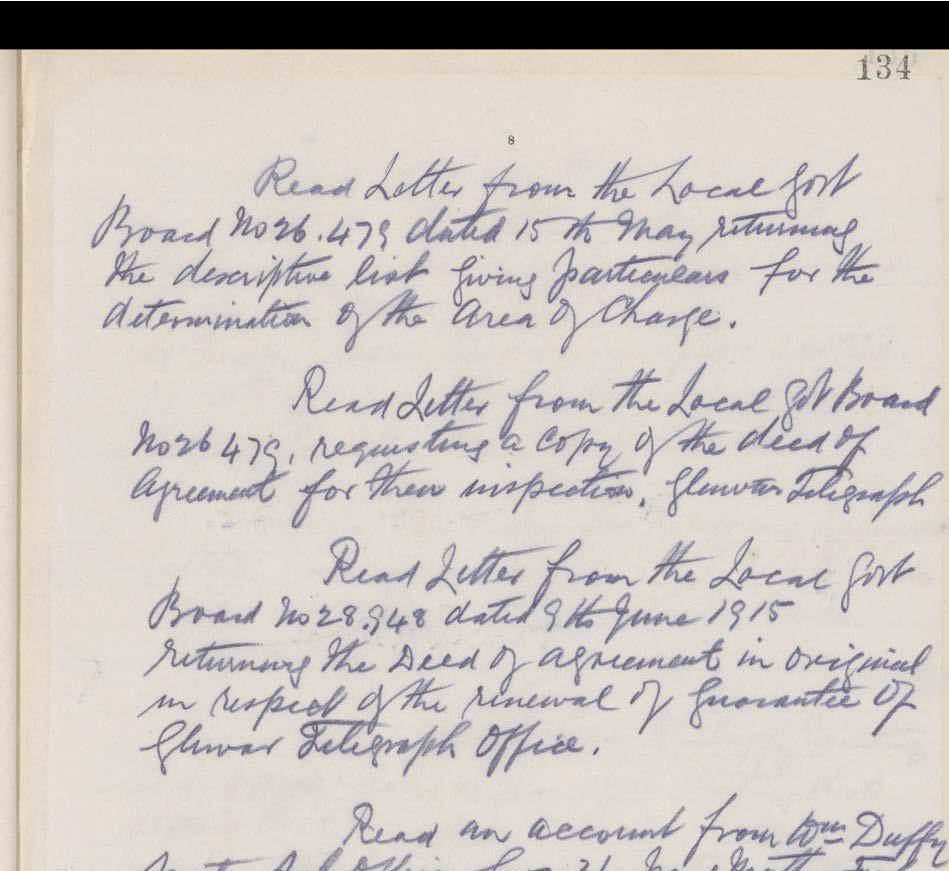 134
8
Read Letter from the Local Govt
Board No 26.479 dated 15th May returning
the descriptive list giving particulars for the
determination of the Area of Charge.
Read Letter from the Local Govt Board
No 26 479, requesting a copy of the deed of
Agreement for their inspection. Glenvar Telegraph
Read Letter from the Local Govt
Board No 28.948 dated 9th June 1915
returning the Deed of agreement in original
in respect of the renewal of Guarantee of
Glenvar Telegraph Office.
Read an account from Wm Duffy